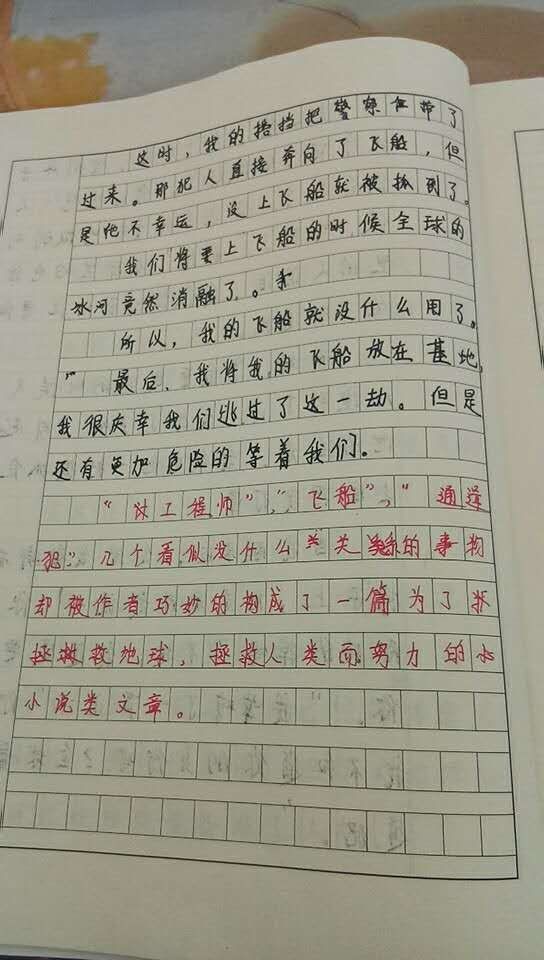 这时，我的搭挡把警察但带了
过来。那犯人直接奔向了飞船，但
是他不幸运，没上飞船就被抓到了。
我们将要上飞船的时候全球的
冰河竟然消融了。
所以，我的飞船就没什么用了。
最后，我将我的飞船放在基地，
我很庆幸我们逃过了这一劫。但是
还有更加危险的等着我们。
“工程师”，“飞船”，“通逃
犯”几个看似没什么关系的事物
却被作者巧妙的构成了一篇为了
拯救地球，拯救人类而努力的
小说类文章。